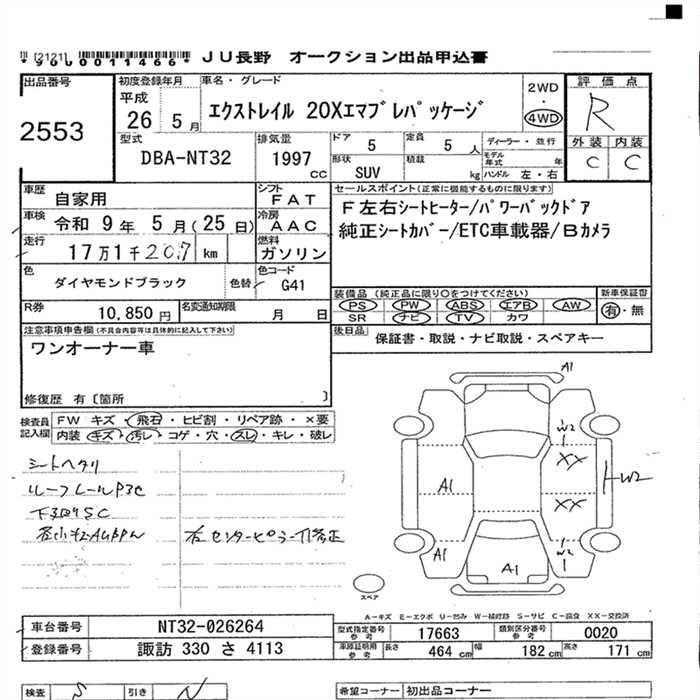 [2121]
*9000011466* JU長野 オークション出品申込書
出品番号 2553
初度登録年月 平成 26 5月
車名・グレード エクストレイル 20Xエマブレパッケージ
2WD ・ 4WD
評価点 R
外装 C 内装 C
型式 DBA-NT32
排気量 1997 cc
ドア 5 定員 5人
形状 SUV 積載 kg
ディーラー・並行
モデル年式 年
ハンドル 左・右
車歴 自家用
シフト FAT
車検 令和 9年 5月(25日)
冷房 AAC
走行 17万1千207 km
燃料 ガソリン
色 ダイヤモンドブラック 色替
色コード G41
R券 10,850円 名変通知期限 月 日
セールスポイント(正常に機能するものに限ります)
F左右シートヒーター/パワーバックドア
純正シートカバー/ETC車載器/Bカメラ
装備品 (純正品に限り○をつけてください)
PS PW ABS エアB AW
SR ナビ TV カワ
新車保証書 有・無
後日品 保証書・取説・ナビ取説・スペアキー
注意事項申告欄(不具合内容等は具体的に記入して下さい)
ワンオーナー車
修復歴 有〔箇所 〕
検査員記入欄
FW キズ・飛石・ヒビ割・リペア跡・×要
内装 キズ・汚レ・コゲ・穴・スレ・キレ・破レ
シートヘタリ
ルーフレールP3C
下回りSC
右センターピラー修正
A1
W2
XX
W2
A1
XX
A1
W2
A1
スペア
A-キズ E-エクボ U-凹み W-補修跡 S-サビ C-腐食 XX-交換済
車台番号 NT32-026264
登録番号 諏訪 330 さ 4113
型式指定番号 参考 17663 類別区分番号 参考 0020
車庫証明用 参考 長さ 464 cm 幅 182 cm 高さ 171 cm
検査 引き
希望コーナー 初出品コーナー